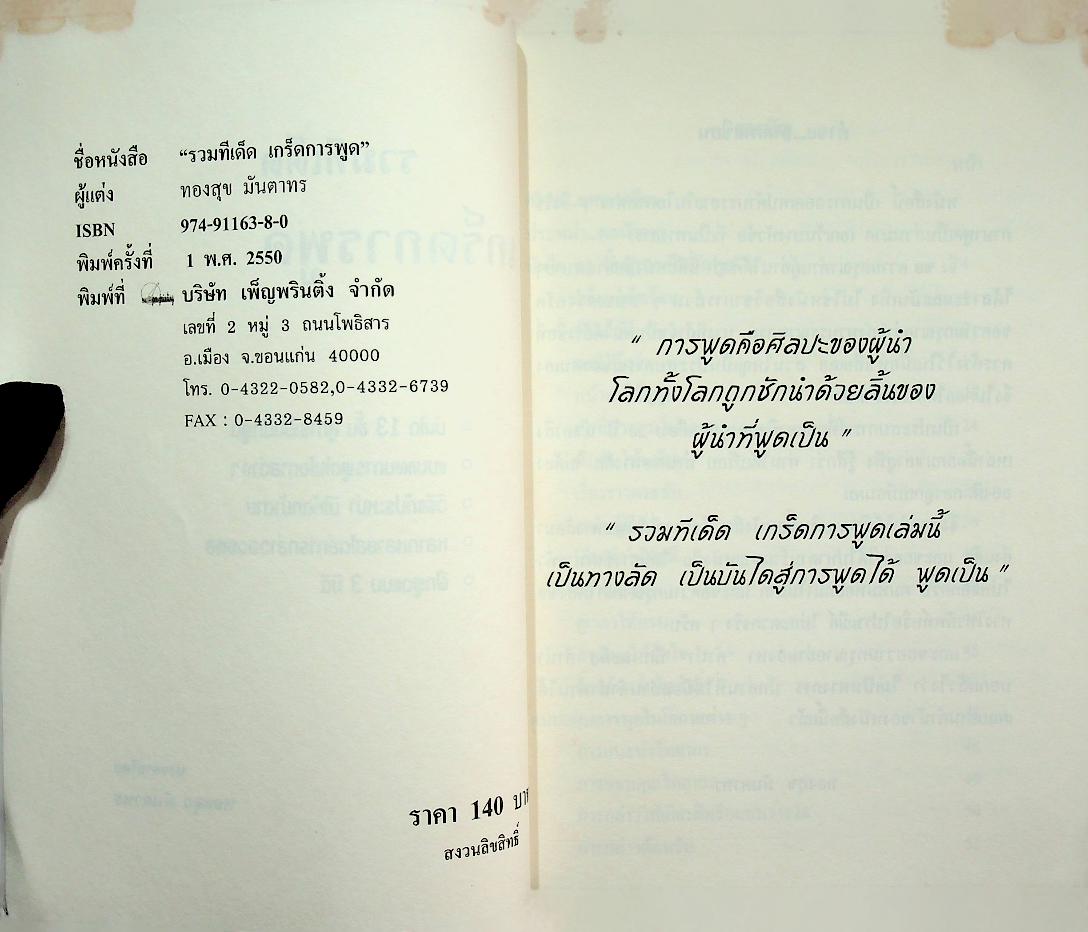 ชื่อหนังสือ “รวมทีเด็ด เกร็ดการพูด”
ผู้แต่ง ทองสุข มันตาทร
ISBN 974-91163-8-0
พิมพ์ครั้งที่ 1 พ.ศ. 2550
พิมพ์ที่ บริษัท เพ็ญพรินติ้ง จำกัด
เลขที่ 2 หมู่ 3 ถนนโพธิสาร
อ.เมือง จ.ขอนแก่น 40000
โทร. 0-4322-0582,0-4332-6739
FAX : 0-4332-8459
ราคา 140 บาท
สงวนลิขสิทธิ์
“ การพูดคือศิลปะของผู้นำ
โลกทั้งโลกถูกชักนำด้วยลิ้นของ
ผู้นำที่พูดเป็น ”
“ รวมทีเด็ด เกร็ดการพูดเล่มนี้
เป็นทางลัด เป็นบันไดสู่การพูดได้ พูดเป็น ”